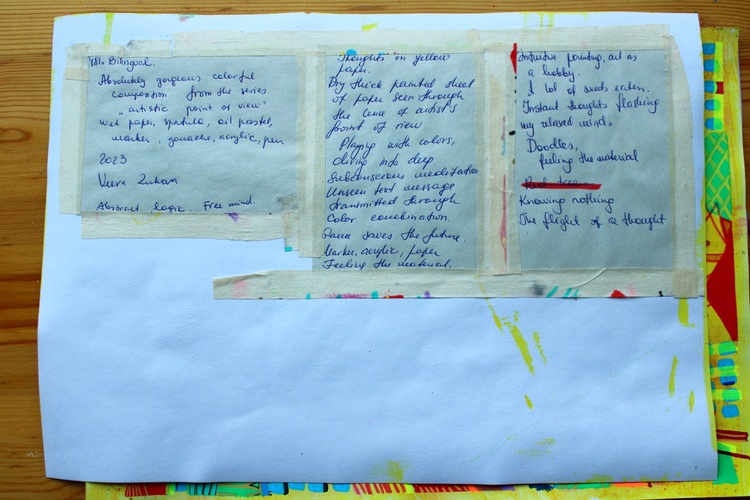 Bilingual.
Absolutely gorgeous colorful
composition from the series
"artistic point of view"
wet paper, spatula, oil pastel,
marker, gouache, acrylic, pen
2023
Veera Zukova
Abstract logic. Free mind.
Thoughts on yellow
paper.
Dry thick painted sheet
of paper seen through
the lense of artist's
point of view
Playing with colors,
diving into deep
Subconscious meditation
Unseen text message
transmitted through
Color combination.
saves the future.
Marker, acrylic, paper
Feeling the material.
Intuitive painting, art as
a hobby.
A lot of sweets eaten.
Instant thoughts flashing
my relaxed mind.
Doodles,
feeling the material
Knowing nothing
The flight of a thought